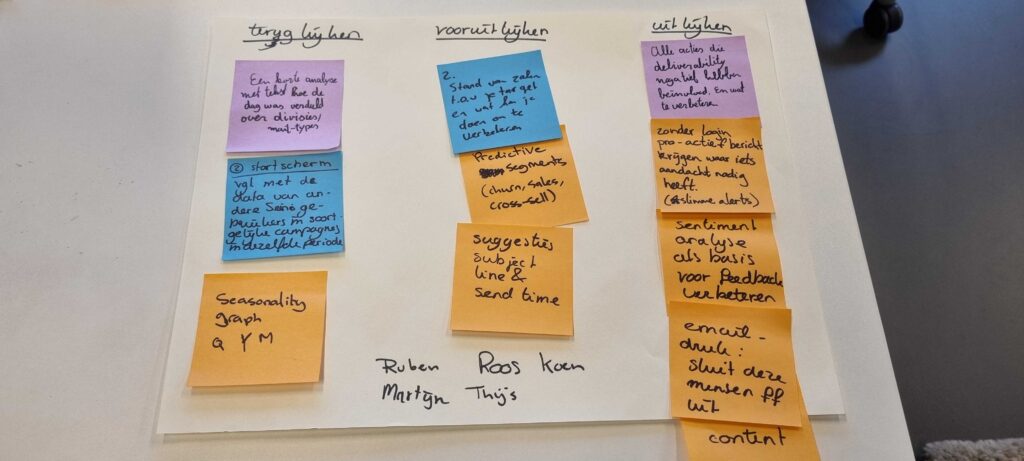 terug kijken
vooruit kijken
uit kijken
Een korte analyse
met tekst hoe de
dag was verdeld
over divisies/
mail-types
② startscherm
vgl met de
data van an-
dere Seino ge-
bruikers in soort-
gelijke campagnes
in dezelfde periode
Seasonality
graph
Q Y M
2.
Stand van zaken
t.o.v je target
en wat kan je
doen om te
verbeteren
Predictive
segments
(churn, sales,
cross-sell)
suggesties
subject
line &
send time
Alle acties die
deliverability
negatief hebben
beinvloed. En wat
te verbeteren
zonder login
pro-actief bericht
krijgen waar iets
aandacht nodig
heeft.
(slimme alerts)
sentiment
analyse
als basis
voor feedback
verbeteren
email-
druk:
sluit deze
mensen ff
uit
content
Ruben Roos Koen
Martijn Thijs